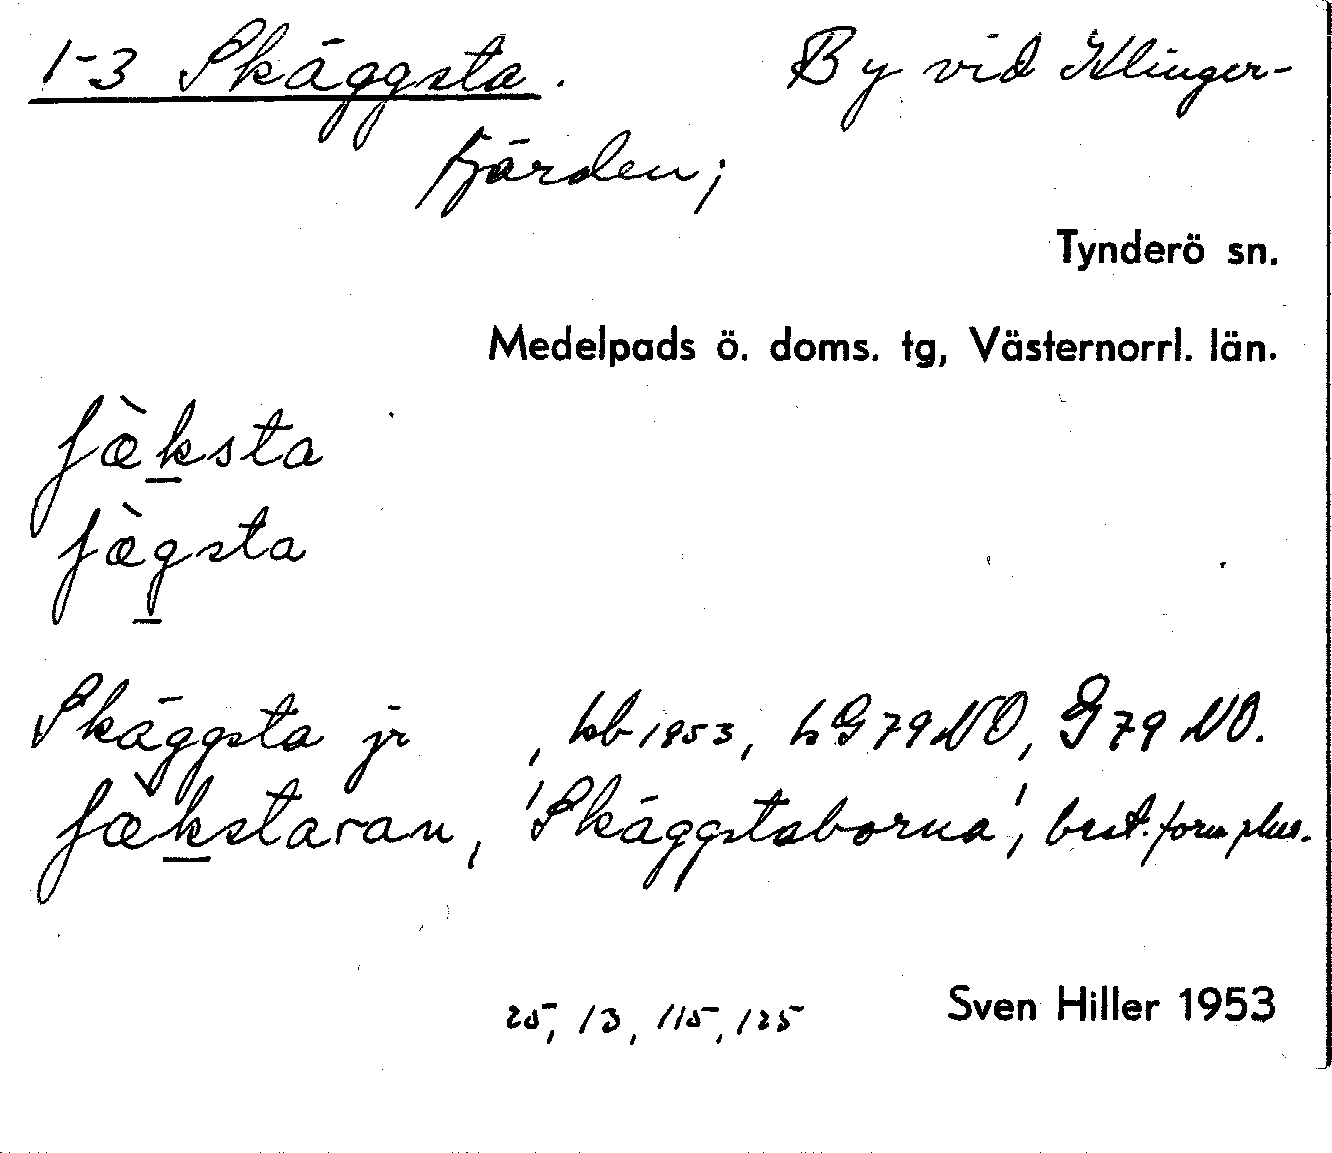 1-3 Skäggsta. By vid Klinger-
fjärden;
Tynderö sn.
Medelpads ö. doms. tg, Västernorrl. län.
ʃæ̀ksta
ʃæ̀gsta
Skäggsta jr , kb 1953, hG 79 NO, G 79 NO.
ʃæ̀kstaran, 'Skäggstaborna', best. form plur.
25, 13, 115, 125 Sven Hiller 1953